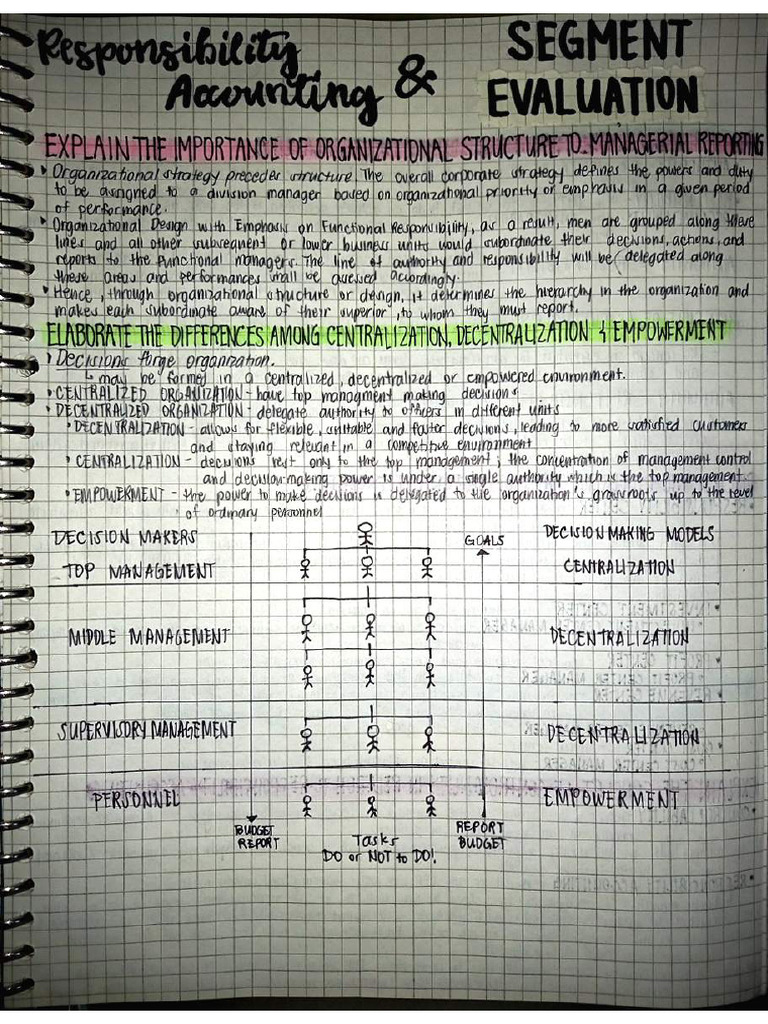 Responsibility Accounting & SEGMENT EVALUATION
EXPLAIN THE IMPORTANCE OF ORGANIZATIONAL STRUCTURE TO MANAGERIAL REPORTING
• Organizational strategy precedes structure. The overall corporate strategy defines the powers and duty
to be assigned to a division manager based on organizational priority or emphasis in a given period
of performance.
• Organizational Design with Emphasis on Functional Responsibility, as a result, men are grouped along these
lines and all other subsequent or lower business units would subordinate their decisions, actions, and
reports to the functional managers. The line of authority and responsibility will be delegated along
these areas and performances shall be assessed accordingly.
• Hence, through organizational structure or design, it determines the hierarchy in the organization and
makes each subordinate aware of their superior, to whom they must report.
ELABORATE THE DIFFERENCES AMONG CENTRALIZATION, DECENTRALIZATION & EMPOWERMENT
• Decisions forge organization.
↳ may be formed in a centralized, decentralized or empowered environment.
• CENTRALIZED ORGANIZATION - have top managment making decisions
• DECENTRALIZED ORGANIZATION - delegate authority to others in different units
• DECENTRALIZATION - allows for flexible, suitable and faster decisions, leading to more satisfied customers
and staying relevant in a competitive environment
• CENTRALIZATION - decisions rest only to the top management; the concentration of management control
and decision-making power is under a single authority which is the top management
• EMPOWERMENT - the power to make decisions is delegated to the organization's grassroots up to the level
of ordinary personnel
DECISION MAKERS GOALS DECISION MAKING MODELS
TOP MANAGEMENT CENTRALIZATION
MIDDLE MANAGEMENT DECENTRALIZATION
SUPERVISORY MANAGEMENT DECENTRALIZATION
PERSONNEL EMPOWERMENT
BUDGET REPORT
Tasks DO or NOT to DO!
REPORT BUDGET